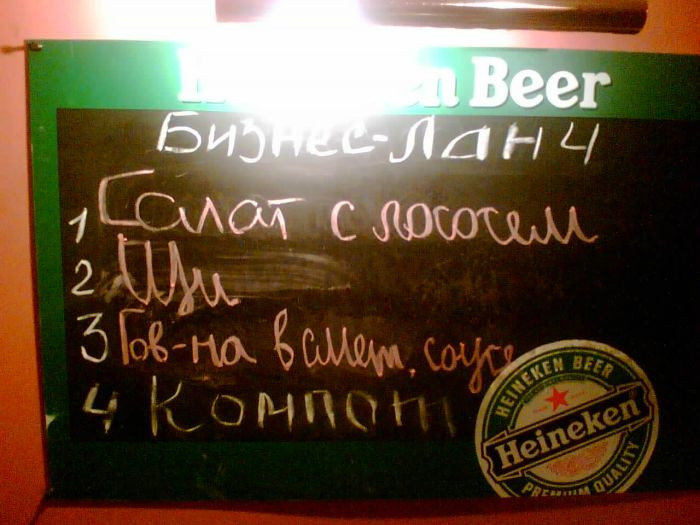 en Beer
Бизнес-Ланч
1 Салат с лососем
2 Щи
3 Гов-на в смет. соусе
4 Компот
HEINEKEN BEER
Heineken
PREMIUM QUALITY